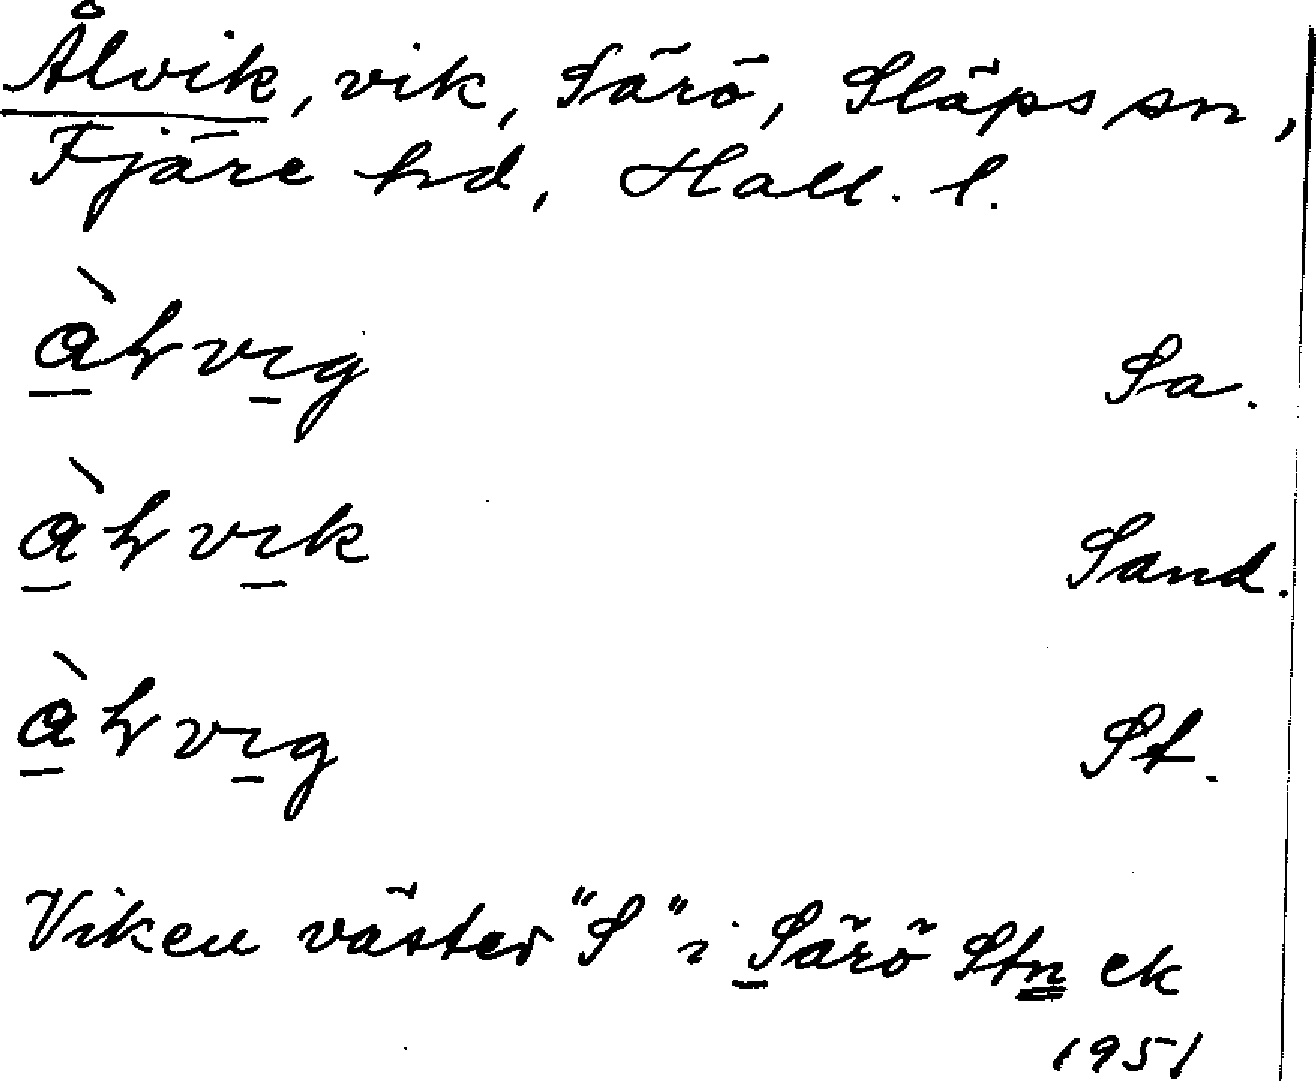 Ålvik, vik, Särö, Släps sn,
Fjäre hd, Hall. l.
àɫvıg Sa.
àɫvık Sand.
àɫvıg St.
Viken väster "S" i Särö Stn ek
1951